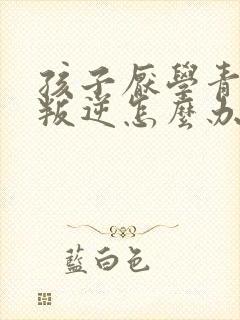 孩子厭學青
叛逆怎麼办
藍白色